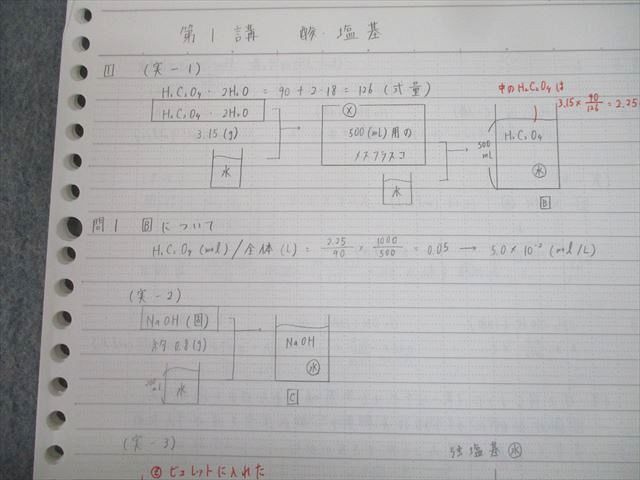 第1講 酸・塩基
1 (実-1)
H₂C₂O₄・2H₂O = 90 + 2・18 = 126 (式量)
H₂C₂O₄・2H₂O
3.15(g)
水
Ⓧ
500(mL)用の
メスフラスコ
水
中のH₂C₂O₄は
3.15 × 90/126 = 2.25
500 mL
H₂C₂O₄
水
B
問1 Bについて
H₂C₂O₄(mol)/全体(L) = 2.25/90 × 1000/500 = 0.05 → 5.0×10⁻²(mol/L)
(実-2)
NaOH(固)
約0.8(g)
mL
水
NaOH
水
C
(実-3)
強塩基 水
② ビュレットに入れた